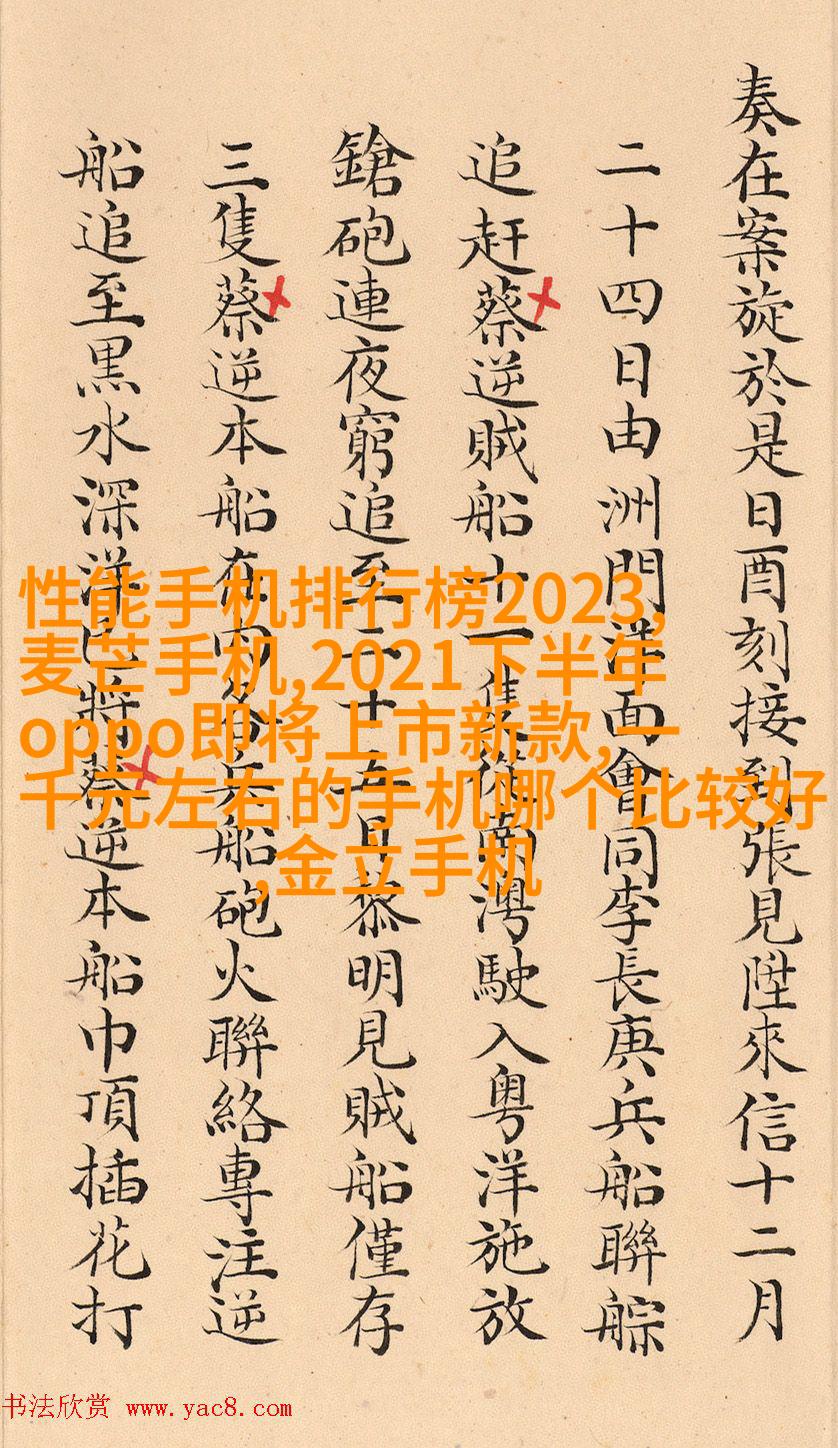 奏在案旋於是日酉刻接到張見陞來信十二月
二十四日由洲門洋面會同李長庚兵船聯䑸
追赶蔡逆賊船十一隻灣駛入粤洋施放
鎗砲連夜窮追至二十五日黎明見賊船僅存
三隻蔡逆本船在内各兵船砲火聯絡專注逆
船追至黒水深洋已將蔡逆本船巾頂插花打
性能手机排行榜2023,
麦芒手机,2021下半年
oppo即将上市新款,一
千元左右的手机哪个比较好
,金立手机
书法欣赏 www.yac8.com